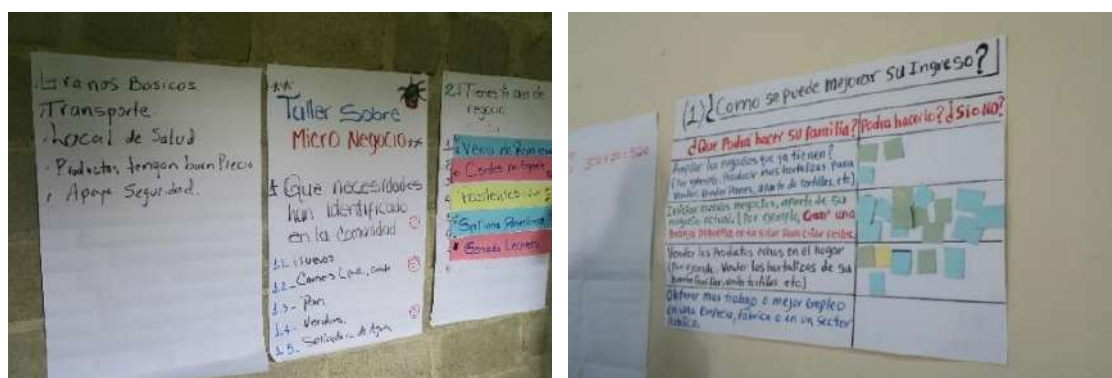 Granos Basicos
Transporte
Local de Salud
Productos tengan buen Precio
Apoyo Seguridad.
**
Taller Sobre
Micro Negocio**
* Que necesidades
han identificado
en la Comunidad
1.1. Huevos
1.2_ Carnes
1.3 - Pan
1.4 - Verdura.
1.5_ Agua
2. Tienes
negocio
Venta de
Ganado Lechero
(1) ¿Como se puede mejorar su Ingreso?
¿Que Podra hacer su familia?
Podra hacerlo? ¿Sio NO?
Ampliar los negocios que ya tienen?
(Por ejemplo, Producir mas hortalizas Para
vender, Vender Panes, aparte de tortillas, etc)
Iniciar nuevos negocios, aparte de su
negocio actual. (Por ejemplo, Crear una
Granja pequeña en su solar Para criar
Vender los Productos echos en el hogar
(Por ejemplo, Vender las hortalizas de su
huerto familiar, venta tortillas etc)
Obtener mas trabajo o mejor empleo
en una Empresa, fabrica o en un Sector